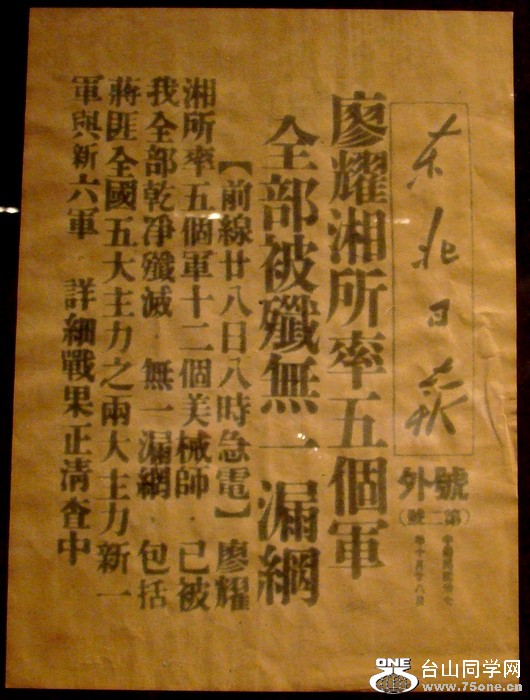 东北日报
號外
(第二號)
中華民國卅七
年十月廿八日
廖耀湘所率五個軍
全部被殲無一漏網
【前線廿八日八時急電】廖耀
湘所率五個軍十二個美械師．已被
我全部乾净殲滅．無一漏網．包括
蔣匪全國五大主力之兩大主力新一
軍與新六軍　詳細戰果正清查中
ONE
台山同学网
www.75one.cn